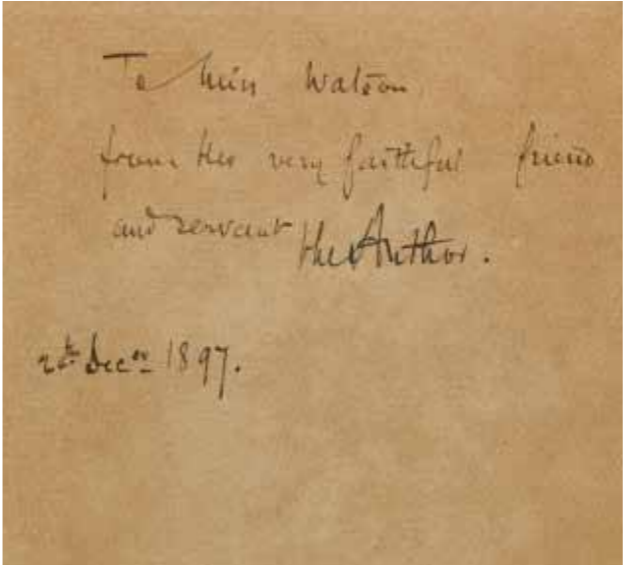 To Miss Watson
from her very faithful friend
and servant the Author.
2d Decer 1897.